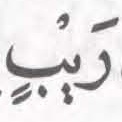 رَيْبٍ